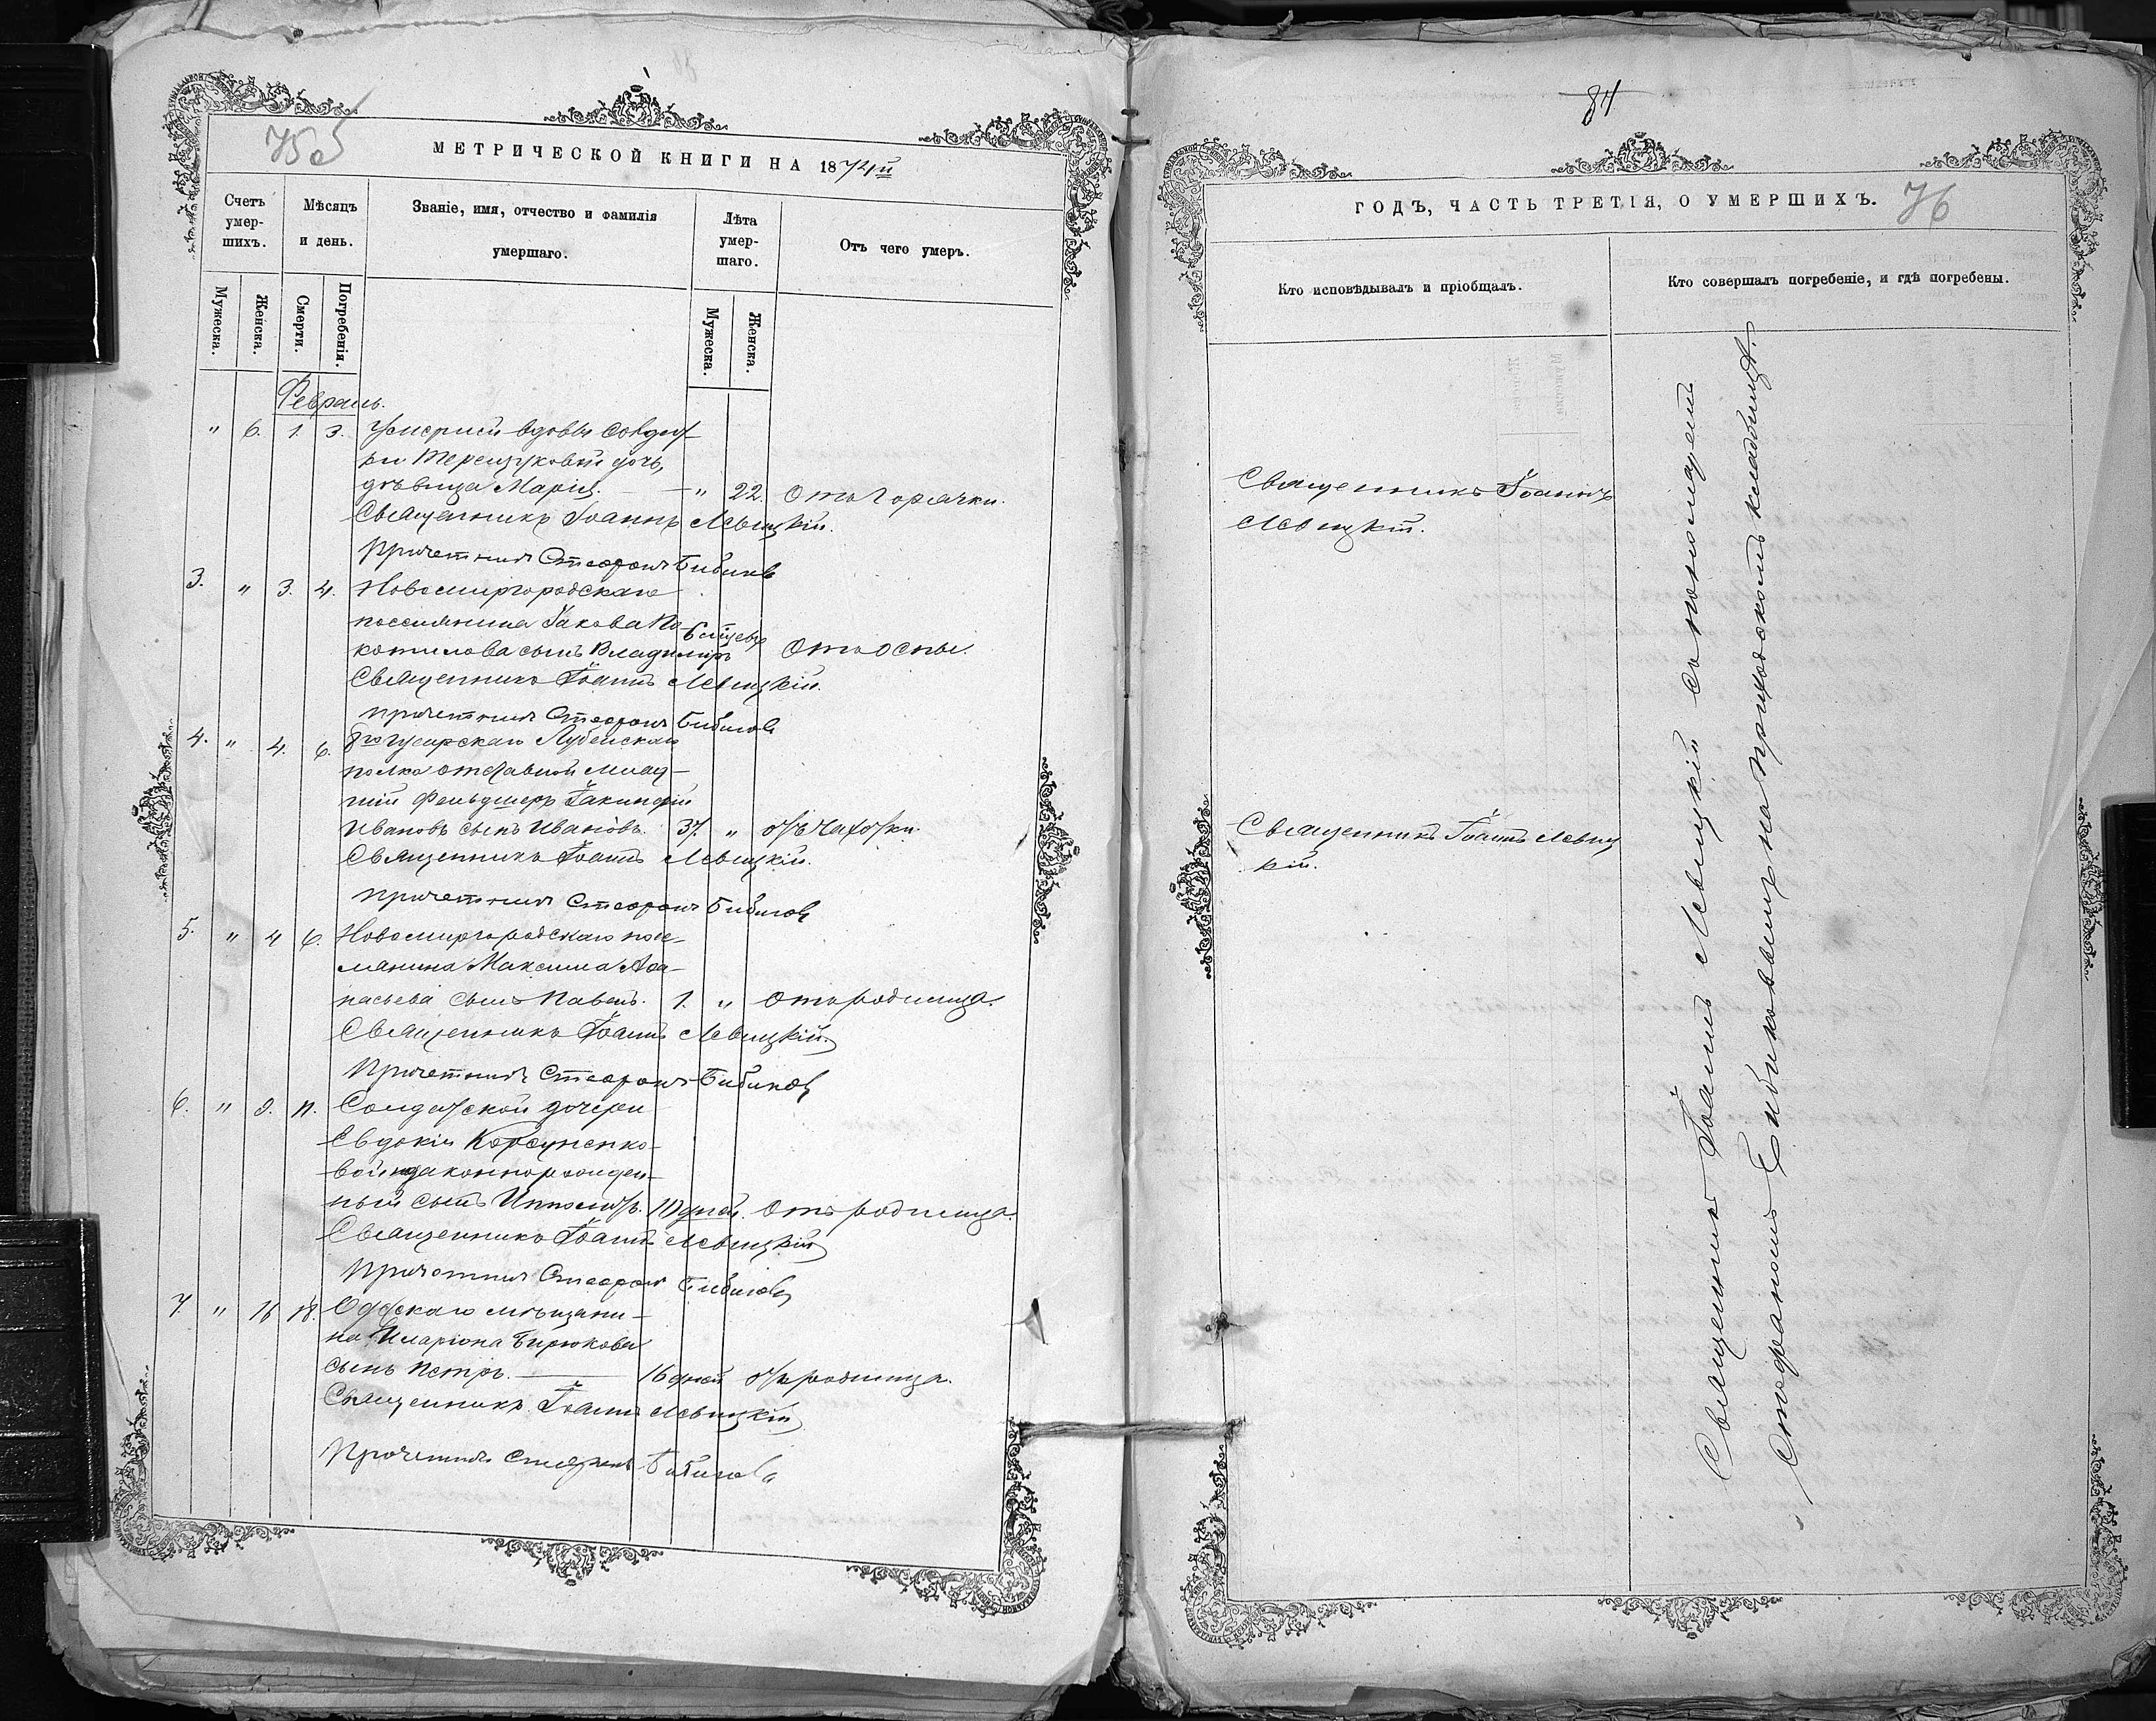 755
МЕТРИЧЕСКОЙ КНИГИ НА 1874й
Счетъ умершихъ.
Мѣсяцъ и день.
Званіе, имя, отчество и фамилія умершаго.
Лѣта умершаго.
Отъ чего умеръ.
Мужеска.
Женска.
Смерти.
Погребенія.
Мужеска.
Женска.
Февраль.
" 6. 1. 3.
вдовы
дочь,
дѣвица Марія. — " 22. Отъ горячки.
Священникъ Іоаннъ Левицкій.
Причетникъ Стефанъ Бибиковъ
3. " 3. 4. Новомиргородскаго
поселянина Іакова По
котилова сынъ Владимиръ 6 мѣсяц Отъ оспы.
Священникъ Іоаннъ Левицкій.
Причетникъ Стефанъ Бибиковъ
4. " 4. 6. 8го гусарскаго Лубенскаго
полка отставной млад-
шій фельдшеръ Іакинфій
Ивановъ сынъ Ивановъ. 37. " отъ чахотки.
Священникъ Іоаннъ Левицкій.
Причетникъ Стефанъ Бибиковъ
5. " 4 6. Новомиргородскаго посе-
лянина Максима Афа-
насьева сынъ Павелъ. 1. " Отъ родимца.
Священникъ Іоаннъ Левицкій.
Причетникъ Стефанъ Бибиковъ
6. " 9. 11. Солдатской дочери
Евдокіи Корсуненко-
вой незаконнорожден-
ный сынъ Ипполитъ. 10 дней. Отъ родимца.
Священникъ Іоаннъ Левицкій
Причетникъ Стефанъ Бибиковъ
7. " 16 18. Одесскаго мѣщани-
на Иларіона Бирюкова
сынъ Петръ. — 16 дней отъ родимца.
Священникъ Іоаннъ Левицкій
Причетникъ Стефанъ Бибиковъ
84
ГОДЪ, ЧАСТЬ ТРЕТІЯ, О УМЕРШИХЪ.
76
Кто исповѣдывалъ и пріобщалъ.
Кто совершалъ погребеніе, и гдѣ погребены.
Священникъ Іоаннъ
Левицкій.
Священникъ Іоаннъ Левиц
кій.
Священникъ Іоаннъ Левицкій съ пономаремъ
Стефаномъ Бибиковымъ на приходскомъ кладбищѣ.